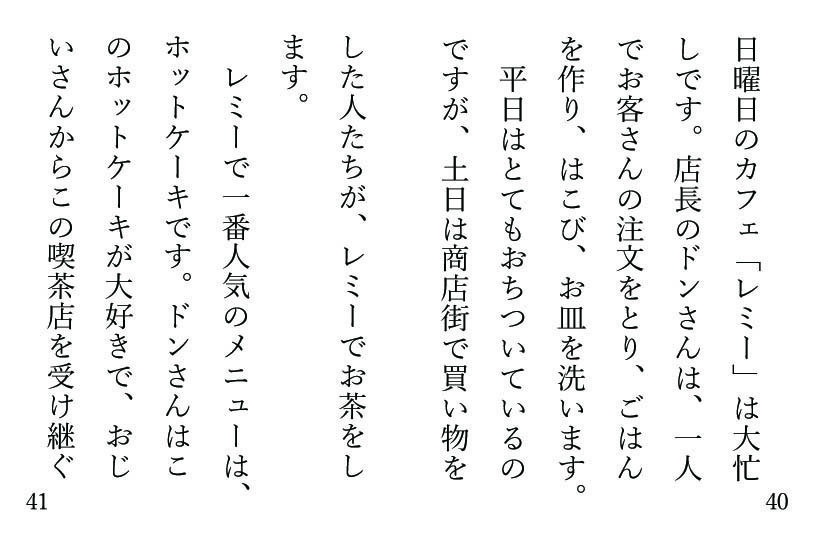 日曜日のカフェ「レミー」は大忙
しです。店長のドンさんは、一人
でお客さんの注文をとり、ごはん
を作り、はこび、お皿を洗います。
　平日はとてもおちついているの
ですが、土日は商店街で買い物を
40
した人たちが、レミーでお茶をし
ます。
　レミーで一番人気のメニューは、
ホットケーキです。ドンさんはこ
のホットケーキが大好きで、おじ
いさんからこの喫茶店を受け継ぐ
41